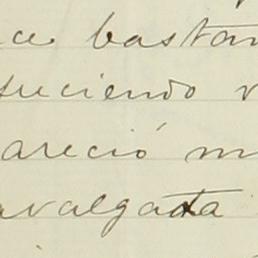 ce bastan
uciendo v
areció m
avalgata